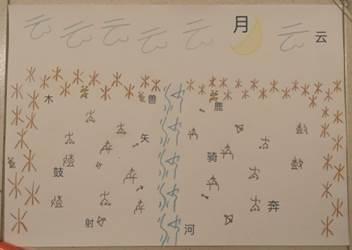 月 云
木 兽 鹿
矢
鼓 骑
射 河 奔